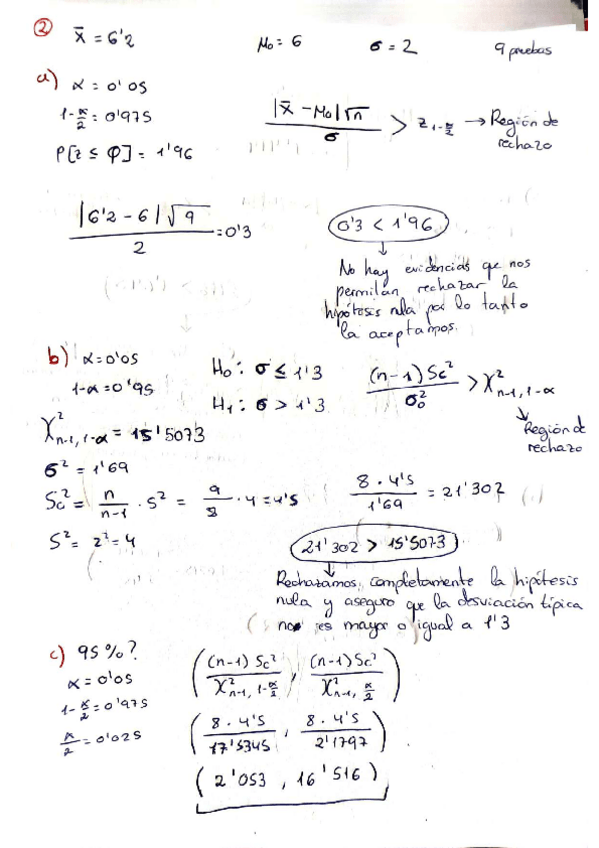 ② x̄ = 6'2 μ₀ = 6 σ = 2 9 pruebas
a) α = 0'05
1-α/2 = 0'975
|x̄ - μ₀|√n / σ > z₁₋α/₂ → Región de rechazo
P[z ≤ φ] = 1'96
|6'2 - 6|√9 / 2 = 0'3
0'3 < 1'96
↓
No hay evidencias que nos
permitan rechazar la
hipótesis nula por lo tanto
la aceptamos.
b) α = 0'05
1-α = 0'95
H₀: σ ≤ 1'3
H₁: σ > 1'3
(n-1) Sc² / σ₀² > χ²ₙ₋₁, ₁₋α
↓
Región de
rechazo
χ²ₙ₋₁, ₁₋α = 15'5073
σ² = 1'69
Sc² = n/n-1 · S² = 9/8 · 4 = 4'5
8 · 4'5 / 1'69 = 21'302
S² = 2² = 4
21'302 > 15'5073
↓
Rechazamos completamente la hipótesis
nula y aseguro que la desviación típica
es mayor o igual a 1'3
c) 95%?
α = 0'05
1-α/2 = 0'975
α/2 = 0'025
( (n-1) Sc² / χ²ₙ₋₁, ₁₋α/₂ , (n-1) Sc² / χ²ₙ₋₁, α/₂ )
( 8 · 4'5 / 17'5345 , 8 · 4'5 / 2'1797 )
( 2'053 , 16'516 )